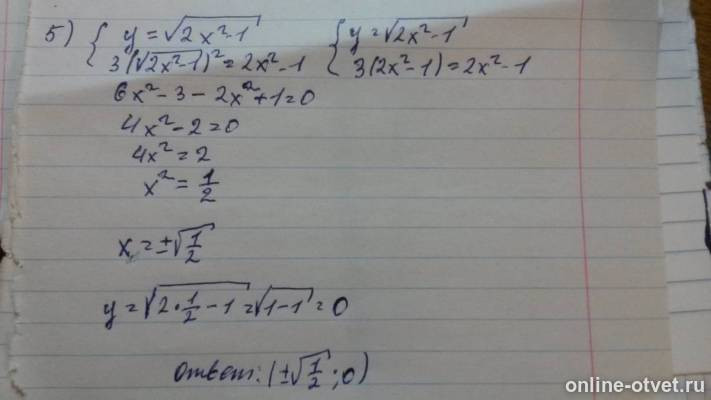 5) { y = √(2x²-1)   { y = √(2x²-1)
3(√(2x²-1))² = 2x²-1   3(2x²-1) = 2x²-1
6x² - 3 - 2x² + 1 = 0
4x² - 2 = 0
4x² = 2
x² = 1/2
x = ±√(1/2)
y = √(2·1/2 - 1) = √(1-1) = 0
ответ: (±√(1/2); 0)
online-otvet.ru